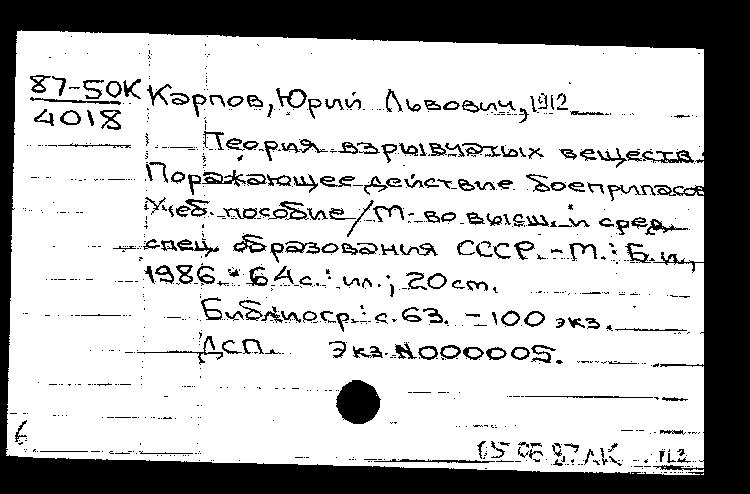 87-50К
4018
Карпов, Юрий Львович, 1912
Теория взрывчатых веществ:
Поражающее действие боеприпасов
Учеб. пособие / М-во высш. и сред.
спец. образования СССР. - М.: Б.и.,
1986. - 64 с.: ил.; 20 см.
Библиогр.: с. 63. - 100 экз.
ДСП. Экз. N000005.
6
05 06 87 ЛК